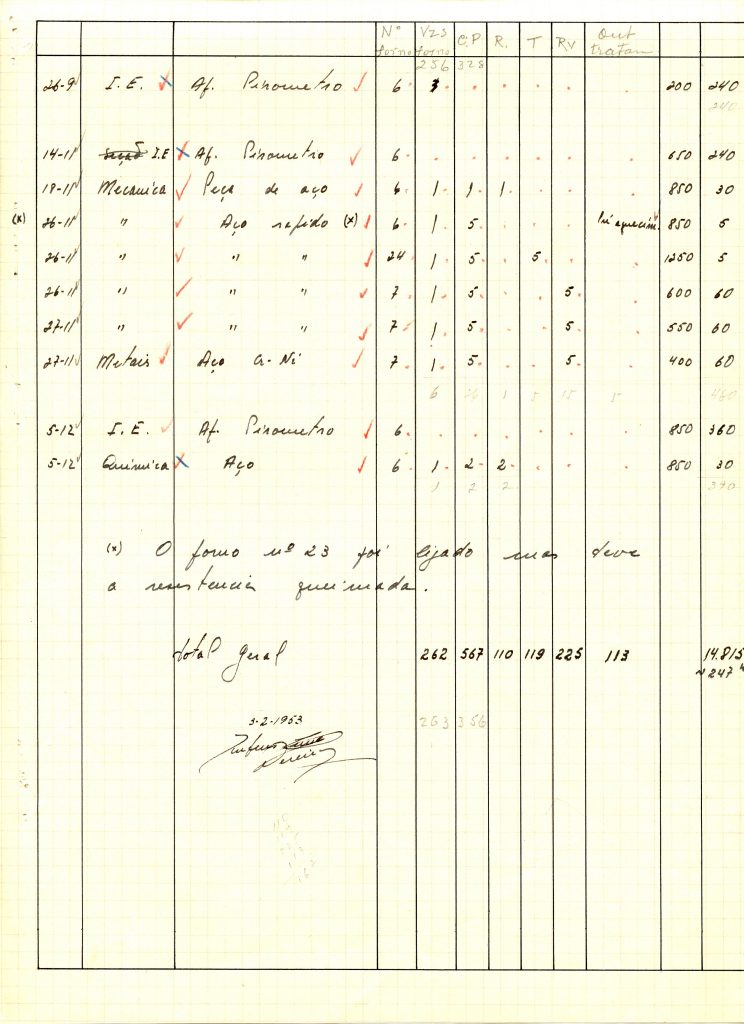 Nº forno Vzs forno C.P R. T RV Out tratam
256 328
26-9 I.E. Af. Pirometro 6 200 240
240
14-11 I.E Af. Pirometro 6 650 240
18-11 Mecanica Peça de aço 6 1 1 1 850 30
(x) 26-11 " Aço rapido (x) 6 1 5 Pré aquecim. 850 5
26-11 " " " 24 1 5 5 1250 5
26-11 " " " 7 1 5 5 600 60
27-11 " " " 7 1 5 5 550 60
27-11 Metais Aço Cr-Ni 7 1 5 5 400 60
6 26 1 5 15 5 460
5-12 I.E. Af. Pirometro 6 850 360
5-12 Quimica Aço 6 1 2 2 850 30
1 2 2 390
(x) O forno nº 23 foi ligado mas deve
a resistencia queimada.
total geral 262 567 110 119 225 113 14.815
~247 h
3-2-1953
263 356
Pereira